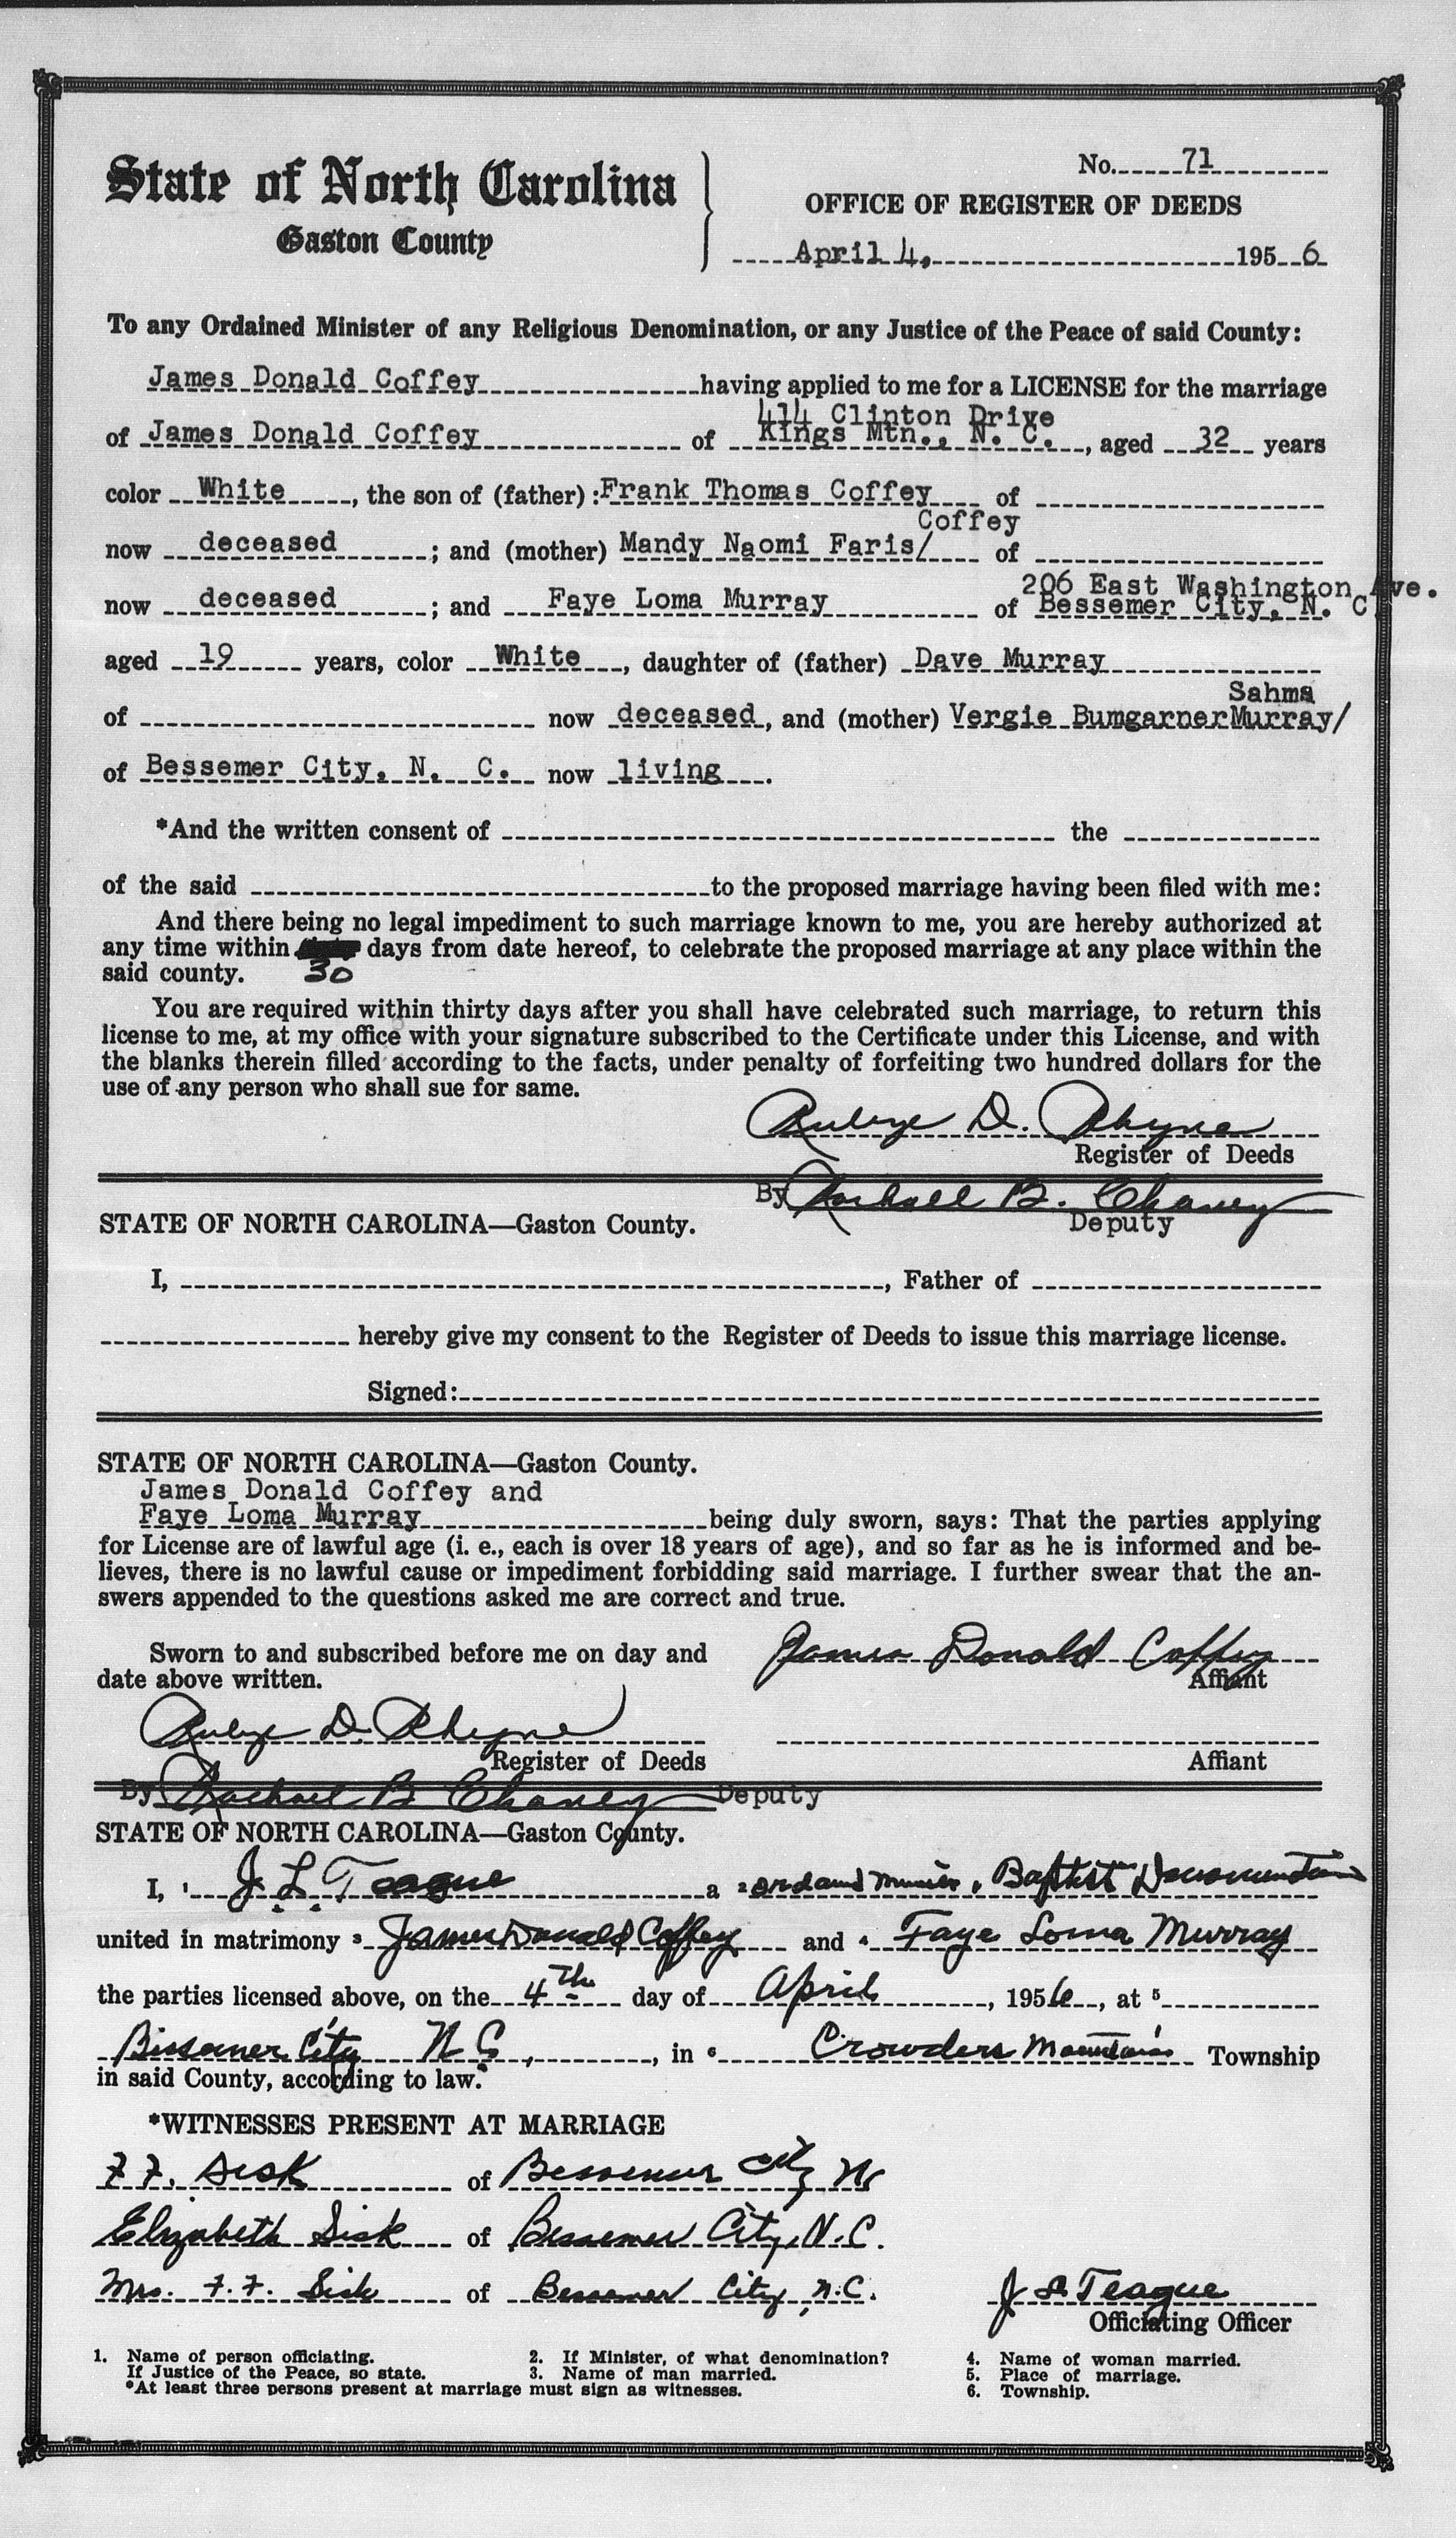 State of North Carolina
Gaston County
No. 71
OFFICE OF REGISTER OF DEEDS
April 4, 195 6
To any Ordained Minister of any Religious Denomination, or any Justice of the Peace of said County:
James Donald Coffey having applied to me for a LICENSE for the marriage
414 Clinton Drive
of James Donald Coffey of Kings Mtn., N. C., aged 32 years
color White, the son of (father): Frank Thomas Coffey of
Coffey
now deceased; and (mother) Mandy Naomi Faris/ of
206 East Washington Ave.
now deceased; and Faye Loma Murray of Bessemer City, N. C
aged 19 years, color White, daughter of (father) Dave Murray
Sahms
of now deceased, and (mother) Vergie Bumgarner Murray/
of Bessemer City, N. C. now living.
*And the written consent of the
of the said to the proposed marriage having been filed with me:
And there being no legal impediment to such marriage known to me, you are hereby authorized at
any time within days from date hereof, to celebrate the proposed marriage at any place within the
said county. 30
You are required within thirty days after you shall have celebrated such marriage, to return this
license to me, at my office with your signature subscribed to the Certificate under this License, and with
the blanks therein filled according to the facts, under penalty of forfeiting two hundred dollars for the
use of any person who shall sue for same.
Rubye D. Rhyne
Register of Deeds
By Rachael B. Chaney
Deputy
STATE OF NORTH CAROLINA—Gaston County.
I, , Father of
hereby give my consent to the Register of Deeds to issue this marriage license.
Signed:
STATE OF NORTH CAROLINA—Gaston County.
James Donald Coffey and
Faye Loma Murray being duly sworn, says: That the parties applying
for License are of lawful age (i. e., each is over 18 years of age), and so far as he is informed and be-
lieves, there is no lawful cause or impediment forbidding said marriage. I further swear that the an-
swers appended to the questions asked me are correct and true.
Sworn to and subscribed before me on day and
date above written.
James Donald Coffey
Affiant
Rubye D. Rhyne
Register of Deeds
Affiant
By Rachael B Chaney Deputy
STATE OF NORTH CAROLINA—Gaston County.
I, 1 J. L. Teague a 2 Baptist
united in matrimony 3 James Donald Coffey and 4 Faye Loma Murray
the parties licensed above, on the 4th day of April, 1956, at 5
Bessemer City N C, in 6 Crowders Mountain Township
in said County, according to law.
*WITNESSES PRESENT AT MARRIAGE
F. F. Sisk of Bessemer City NC
Elizabeth Sisk of Bessemer City, N.C.
Mrs. F. F. Sisk of Bessemer City, N.C.
J L Teague
Officiating Officer
1. Name of person officiating.
If Justice of the Peace, so state.
*At least three persons present at marriage must sign as witnesses.
2. If Minister, of what denomination?
3. Name of man married.
4. Name of woman married.
5. Place of marriage.
6. Township.